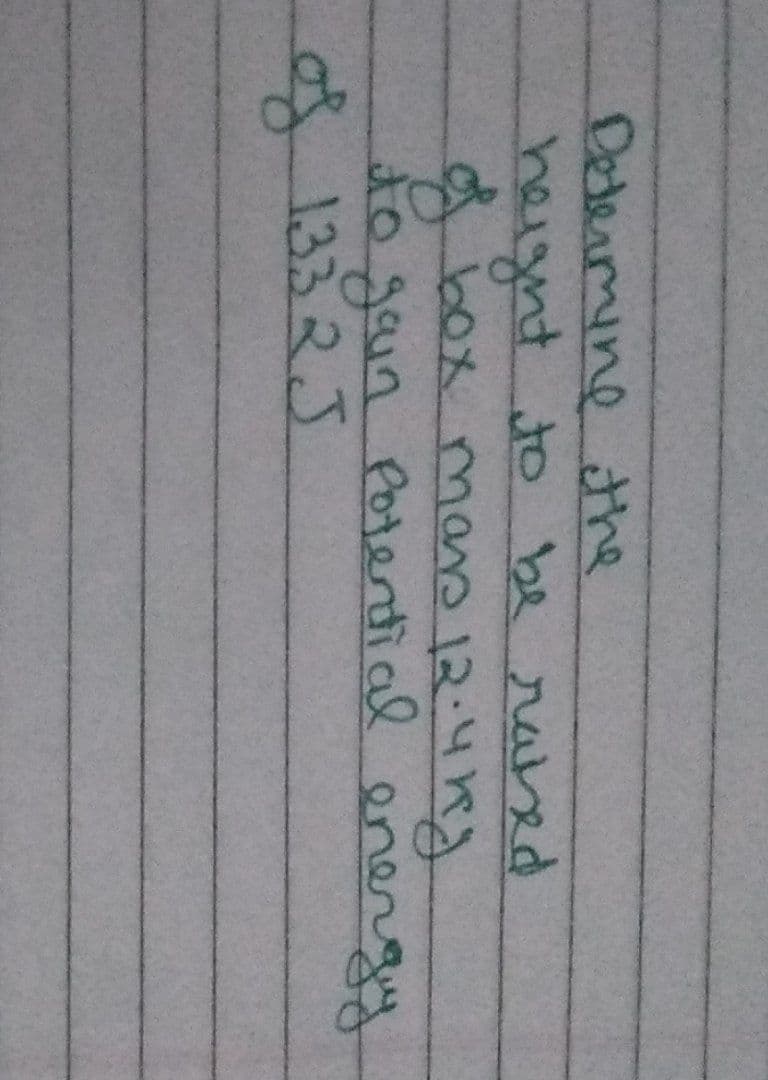 Determine the
height to be raised
of box mass 12.4 kg
to gain Potential energy
of 1332 J